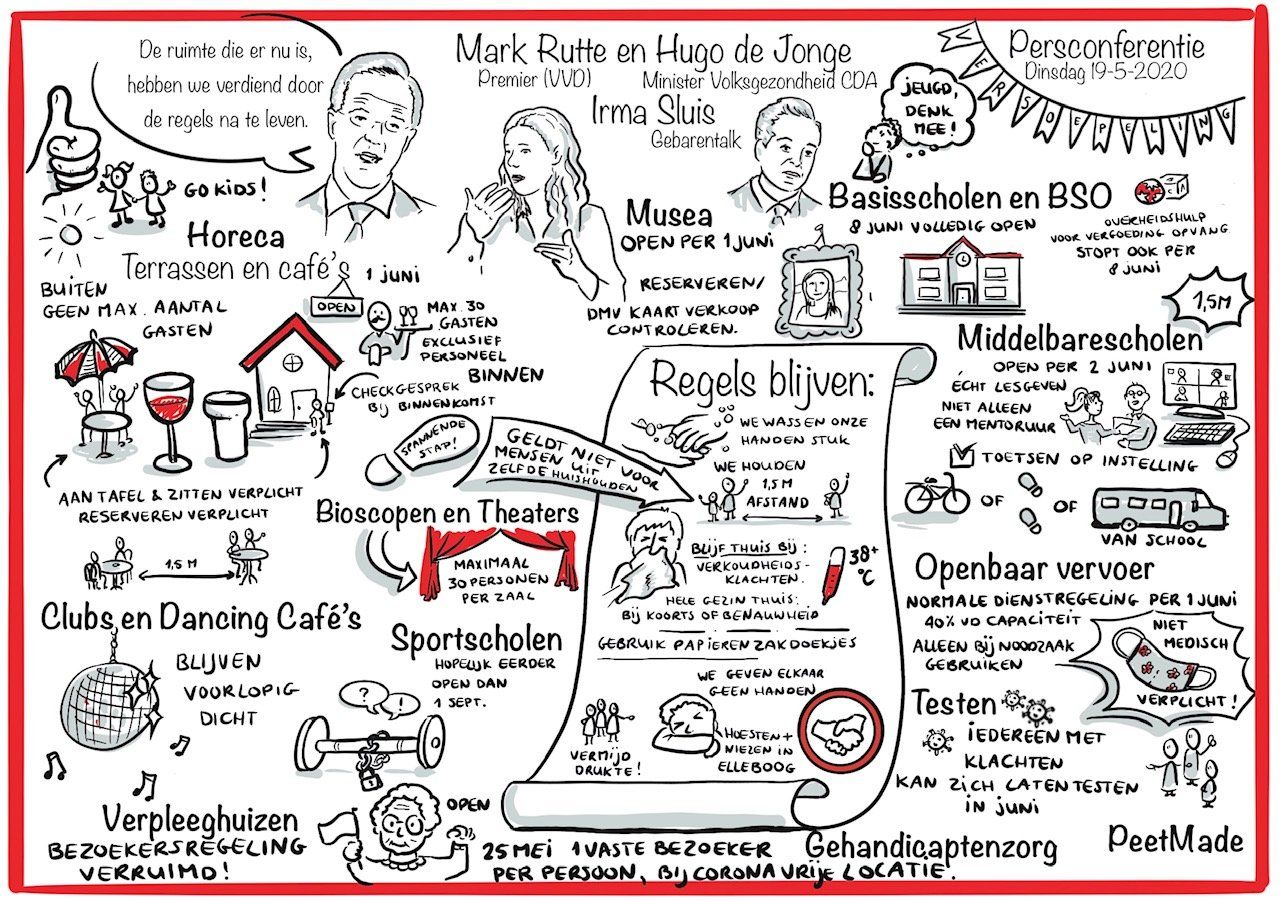 De ruimte die er nu is,
hebben we verdiend door
de regels na te leven.
Mark Rutte en Hugo de Jonge
Premier (VVD)
Minister Volksgezondheid CDA
Irma Sluis
Gebarentalk
JEUGD,
DENK
MEE!
Persconferentie
Dinsdag 19-5-2020
VERSOEPELING
GO KIDS!
Horeca
Terrassen en café's 1 JUNI
BUITEN
GEEN MAX. AANTAL
GASTEN
OPEN
MAX. 30
GASTEN
EXCLUSIEF
PERSONEEL
BINNEN
CHECKGESPREK
BIJ BINNENKOMST
AAN TAFEL & ZITTEN VERPLICHT
RESERVEREN VERPLICHT
1,5 M
Musea
OPEN PER 1 JUNI
RESERVEREN/
DMV KAARTVERKOOP
CONTROLEREN.
Basisscholen en BSO
8 JUNI VOLLEDIG OPEN
OVERHEIDSHULP
VOOR VERGOEDING OPVANG
STOPT OOK PER
8 JUNI
1,5 M
Middelbarescholen
OPEN PER 2 JUNI
ÉCHT LESGEVEN
NIET ALLEEN
EEN MENTORUUR
TOETSEN OP INSTELLING
OF
OF
VAN SCHOOL
SPANNENDE
STAP!
GELDT NIET VOOR
MENSEN UIT
ZELFDE HUISHOUDEN
Regels blijven:
WE WASSEN ONZE
HANDEN STUK
WE HOUDEN
1,5 M
AFSTAND
BLIJF THUIS BIJ:
VERKOUDHEIDS-
KLACHTEN.
38+
°C
HELE GEZIN THUIS:
BIJ KOORTS OF BENAUWHEID
GEBRUIK PAPIEREN ZAKDOEKJES
WE GEVEN ELKAAR
GEEN HANDEN
VERMIJD
DRUKTE!
HOESTEN +
NIEZEN IN
ELLEBOOG
Bioscopen en Theaters
MAXIMAAL
30 PERSONEN
PER ZAAL
Clubs en Dancing Café's
BLIJVEN
VOORLOPIG
DICHT
Sportscholen
HOPELIJK EERDER
OPEN DAN
1 SEPT.
?
!
Openbaar vervoer
NORMALE DIENSTREGELING PER 1 JUNI
40% VD CAPACITEIT
ALLEEN BIJ NOODZAAK
GEBRUIKEN
NIET
MEDISCH
VERPLICHT!
Testen
IEDEREEN MET
KLACHTEN
KAN ZICH LATEN TESTEN
IN JUNI
Verpleeghuizen
BEZOEKERSREGELING
VERRUIMD!
OPEN
25 MEI 1 VASTE BEZOEKER
PER PERSOON, BIJ CORONA VRIJE LOCATIE.
Gehandicaptenzorg
PeetMade